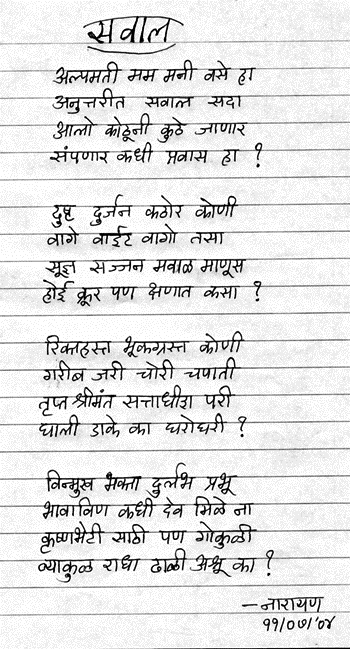 सवाल
अल्पमती मम मनी वसे हा
अनुत्तरीत सवाल सदा
आलो कोठूनी कुठे जाणार
संपणार कधी प्रवास हा ?
दुष्ट दुर्जन कठोर कोणी
वागे वाईट वागो तसा
सूज्ञ सज्जन मवाळ माणूस
होई क्रूर पण क्षणात कसा ?
रिक्तहस्त भूकग्रस्त कोणी
गरीब जरी चोरी चपाती
तृप्त श्रीमंत सत्ताधीश परी
घाली डाके का घरोघरी ?
विन्मुख भक्ता दुर्लभ प्रभू
भावाविण कधी देव मिळे ना
कृष्णभेटी साठी पण गोकुळी
व्याकुळ राधा ढाळी अश्रू का ?
—नारायण
११/०७/'०४